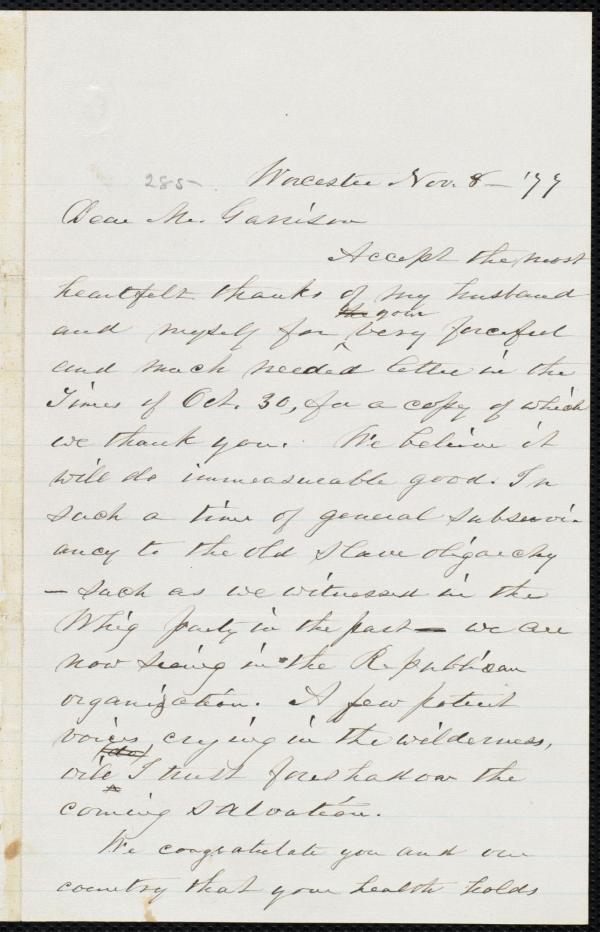 285-
Worcester Nov. 8 - '77
Dear Mr. Garrison
Accept the most
heartfelt thanks of my husband
the your
and myself for ^ very forceful
and much needed letter in the
Times of Oct. 30, for a copy of which
we thank you. We believe it
will do immeasurable good. In
such a time of general subservi-
ancy to the old slave oligarchy
— such as we witnessed in the
Whig party in the past — we are
now seeing in the Republican
organization. A few potent
voices crying in the wilderness,
(do)
will ^ I trust foreshadow the
coming salvation.
We congratulate you and our
country that your health holds